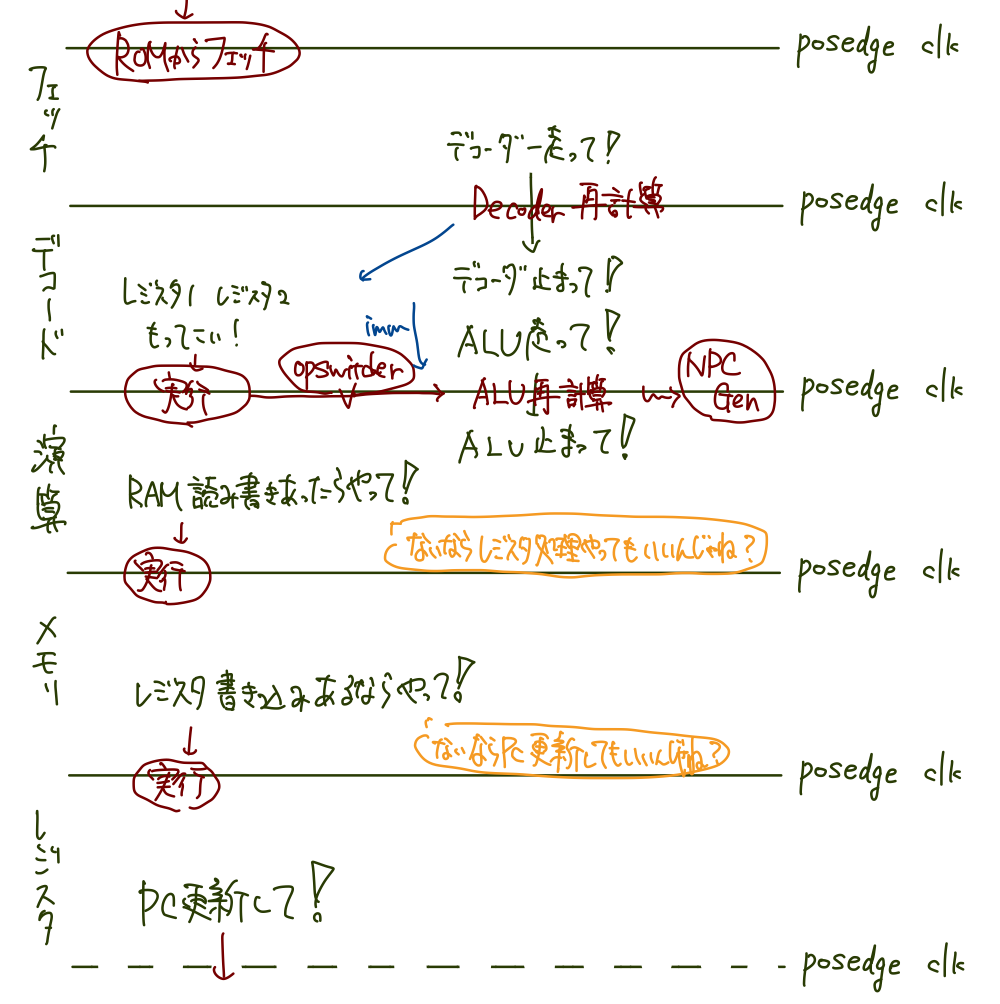 ROMからフェッチ
posedge clk
フェッチ
デコーダー走って!
Decoder 再計算
posedge clk
デコード
デコーダ止まって!
レジスタ1 レジスタ2
もってこい!
imm
ALU走って!
opswitcher
NPC
Gen
実行
ALU再計算
posedge clk
ALU止まって!
演算
RAM 読み書きあったらやって!
ないならレジスタ処理やってもいいんじゃね?
実行
posedge clk
メモリ
レジスタ書き込みあるならやって!
ないならPC更新してもいいんじゃね?
実行
posedge clk
レジスタ
PC更新して!
posedge clk